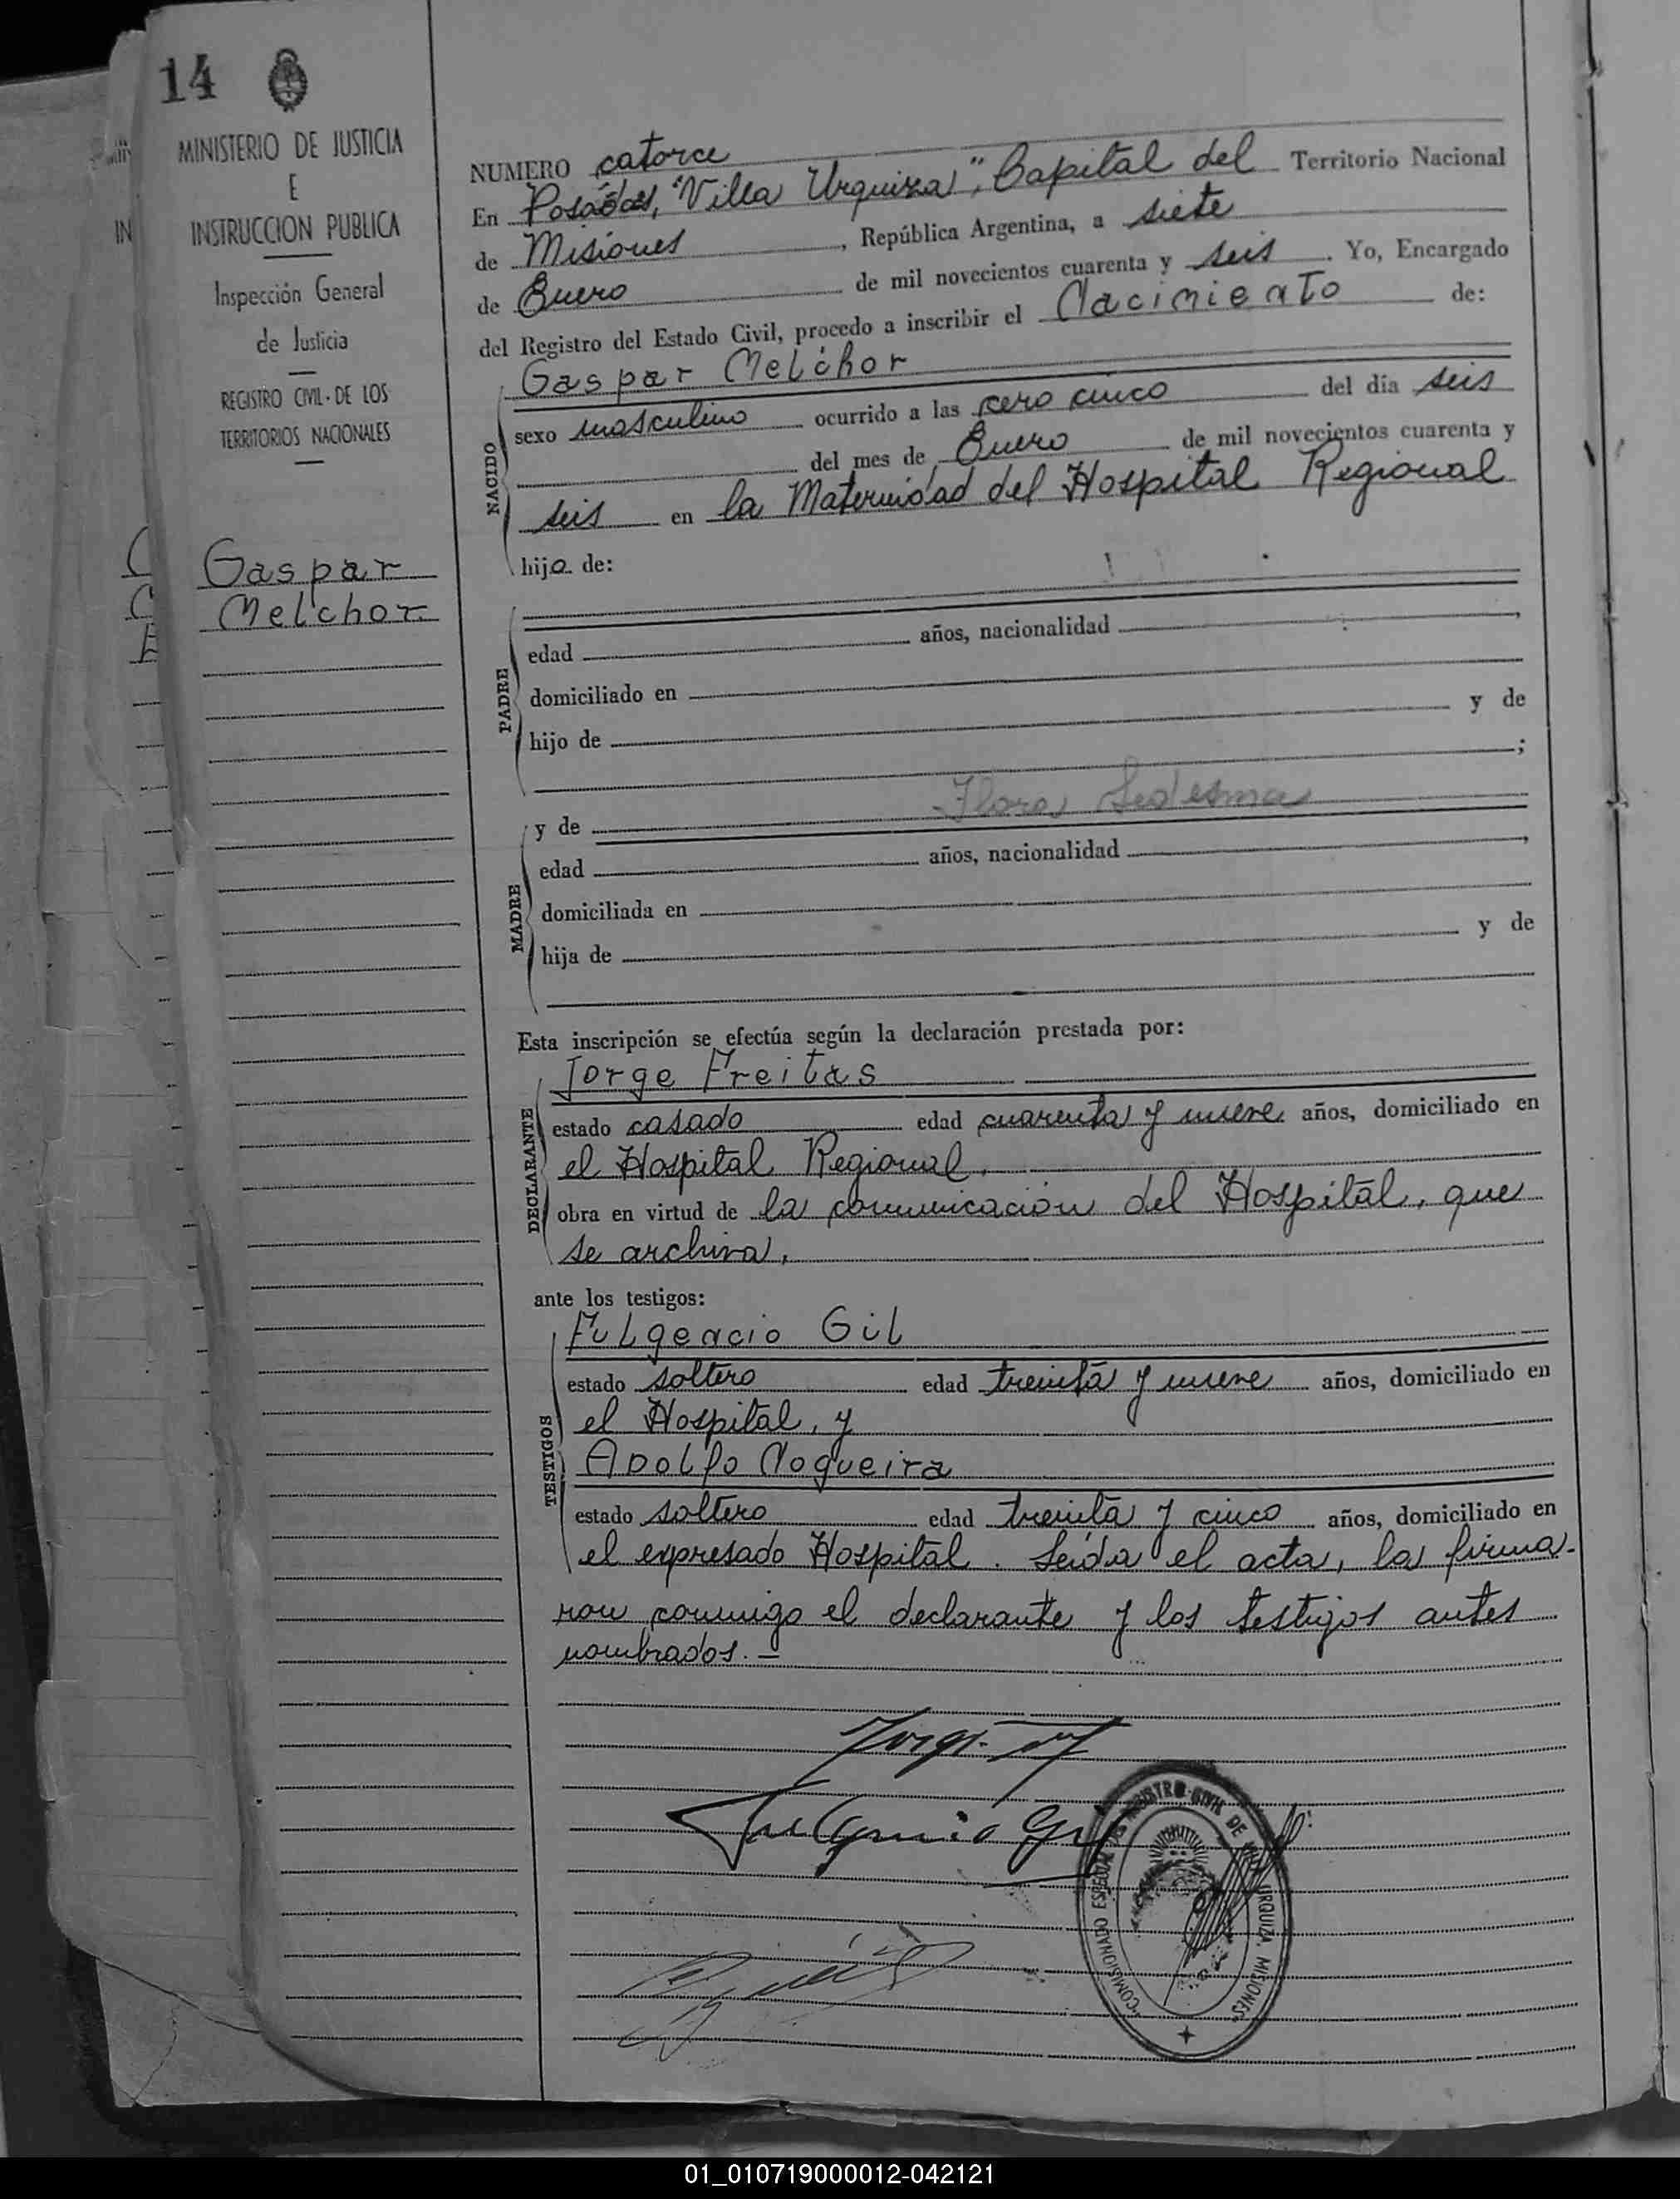 14
MINISTERIO DE JUSTICIA
E
INSTRUCCION PUBLICA
Inspección General
de Justicia
REGISTRO CIVIL DE LOS
TERRITORIOS NACIONALES
Gaspar
Melchor.
NUMERO catorce
En Posadas, "Villa Urquiza", Capital del Territorio Nacional
de Misiones, República Argentina, a siete
de Enero de mil novecientos cuarenta y seis. Yo, Encargado
del Registro del Estado Civil, procedo a inscribir el Nacimiento de:
NACIDO
Gaspar Melchor
sexo masculino ocurrido a las cero cinco del día seis
del mes de Enero de mil novecientos cuarenta y
seis en la Maternidad del Hospital Regional
hijo de:
PADRE
edad años, nacionalidad ,
domiciliado en
hijo de y de
;
MADRE
y de Flora Ledesma
edad años, nacionalidad ,
domiciliada en
hija de y de
Esta inscripción se efectúa según la declaración prestada por:
DECLARANTE
Jorge Freitas
estado casado edad cuarenta y nueve años, domiciliado en
el Hospital Regional.
obra en virtud de la comunicación del Hospital, que
se archiva.
ante los testigos:
TESTIGOS
Fulgencio Gil
estado soltero edad treinta y nueve años, domiciliado en
el Hospital, y
Adolfo Nogueira
estado soltero edad treinta y cinco años, domiciliado en
el expresado Hospital. Leída el acta, la firma-
ron conmigo el declarante y los testigos antes
nombrados.—
Fulgencio Gil
COMISIONADO ESPECIAL DEL REGISTRO CIVIL DE VILLA URQUIZA, MISIONES
01_010719000012-042121